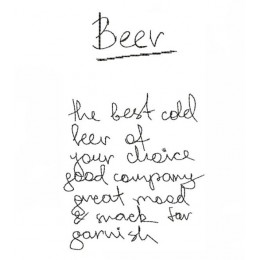 Beer
the best cold
beer of
your choice
good company
great mood
& snack for
garnish